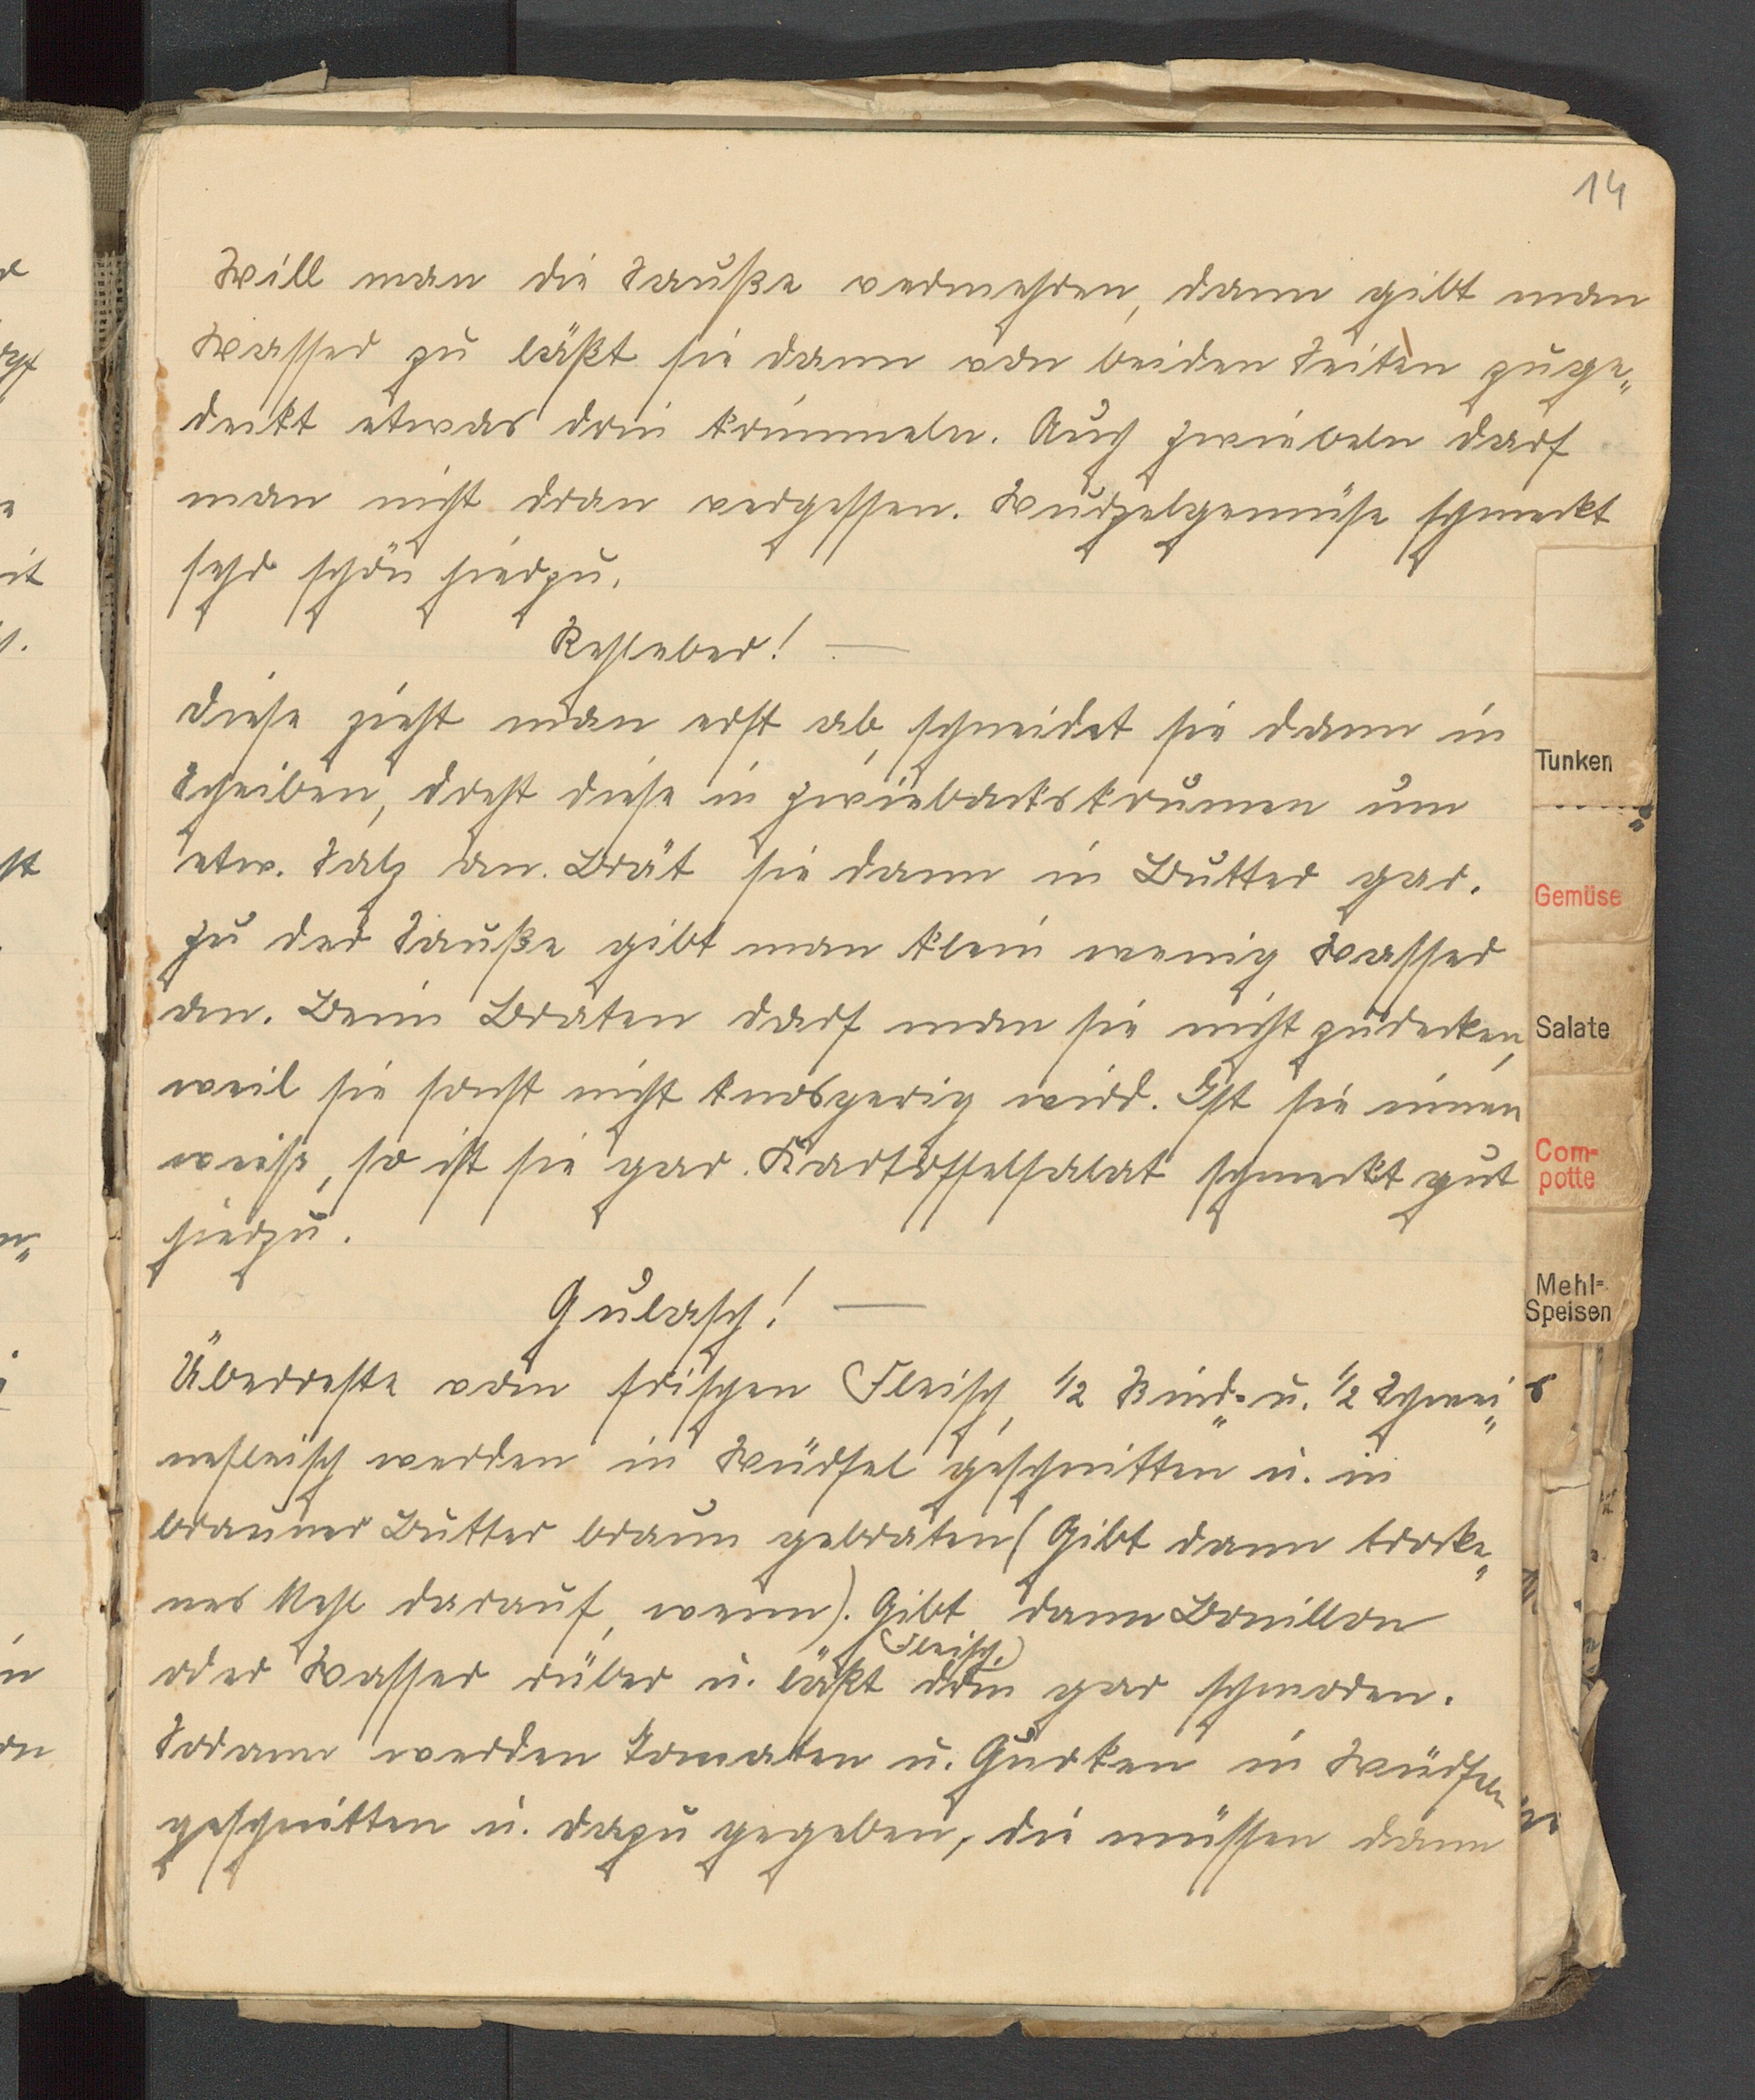 14
Will man die Sauße vermehren, dann gibt man
Wasser zu läßt sie dann von beiden Seiten zuge„
deckt etwas drin krimmeln. Auch Zwiebeln darf
man nicht dran vergessen. Wurzelgemüse schmeckt
sehr schön hierzu.
Rehleber! —
Diese zieht man erst ab, schneidet sie dann in
Scheiben, dreht diese in Zwiebackskrumen um
etw. Salz an. Brät sie dann in Butter gar.
Zu der Sauße gibt man klein wenig Wasser
an. Beim Braten darf man sie nicht zudecken,
weil sie sonst nicht knosperig wird. Ist sie innen
weiß, so ist sie gar. Kartoffelsalat schmeckt gut
hierzu.
Gulasch! —
Überreste vom frischen Fleisch, 1/2 Rind- u. 1/2 Schwei„
nefleisch werden in Würfel geschnitten u. in
brauner Butter braun gebraten (Gibt dann trocke„
nes Mehl darauf, wenn). Gibt dann Bouillon
Fleisch,
oder Wasser rüber u. läßt drin gar schmoren.
Sodann werden Tomaten u. Gurken in Würfeln
geschnitten u. dazu gegeben, die müssen dann
Tunken
Gemüse
Salate
Com-
potte
Mehl-
Speisen